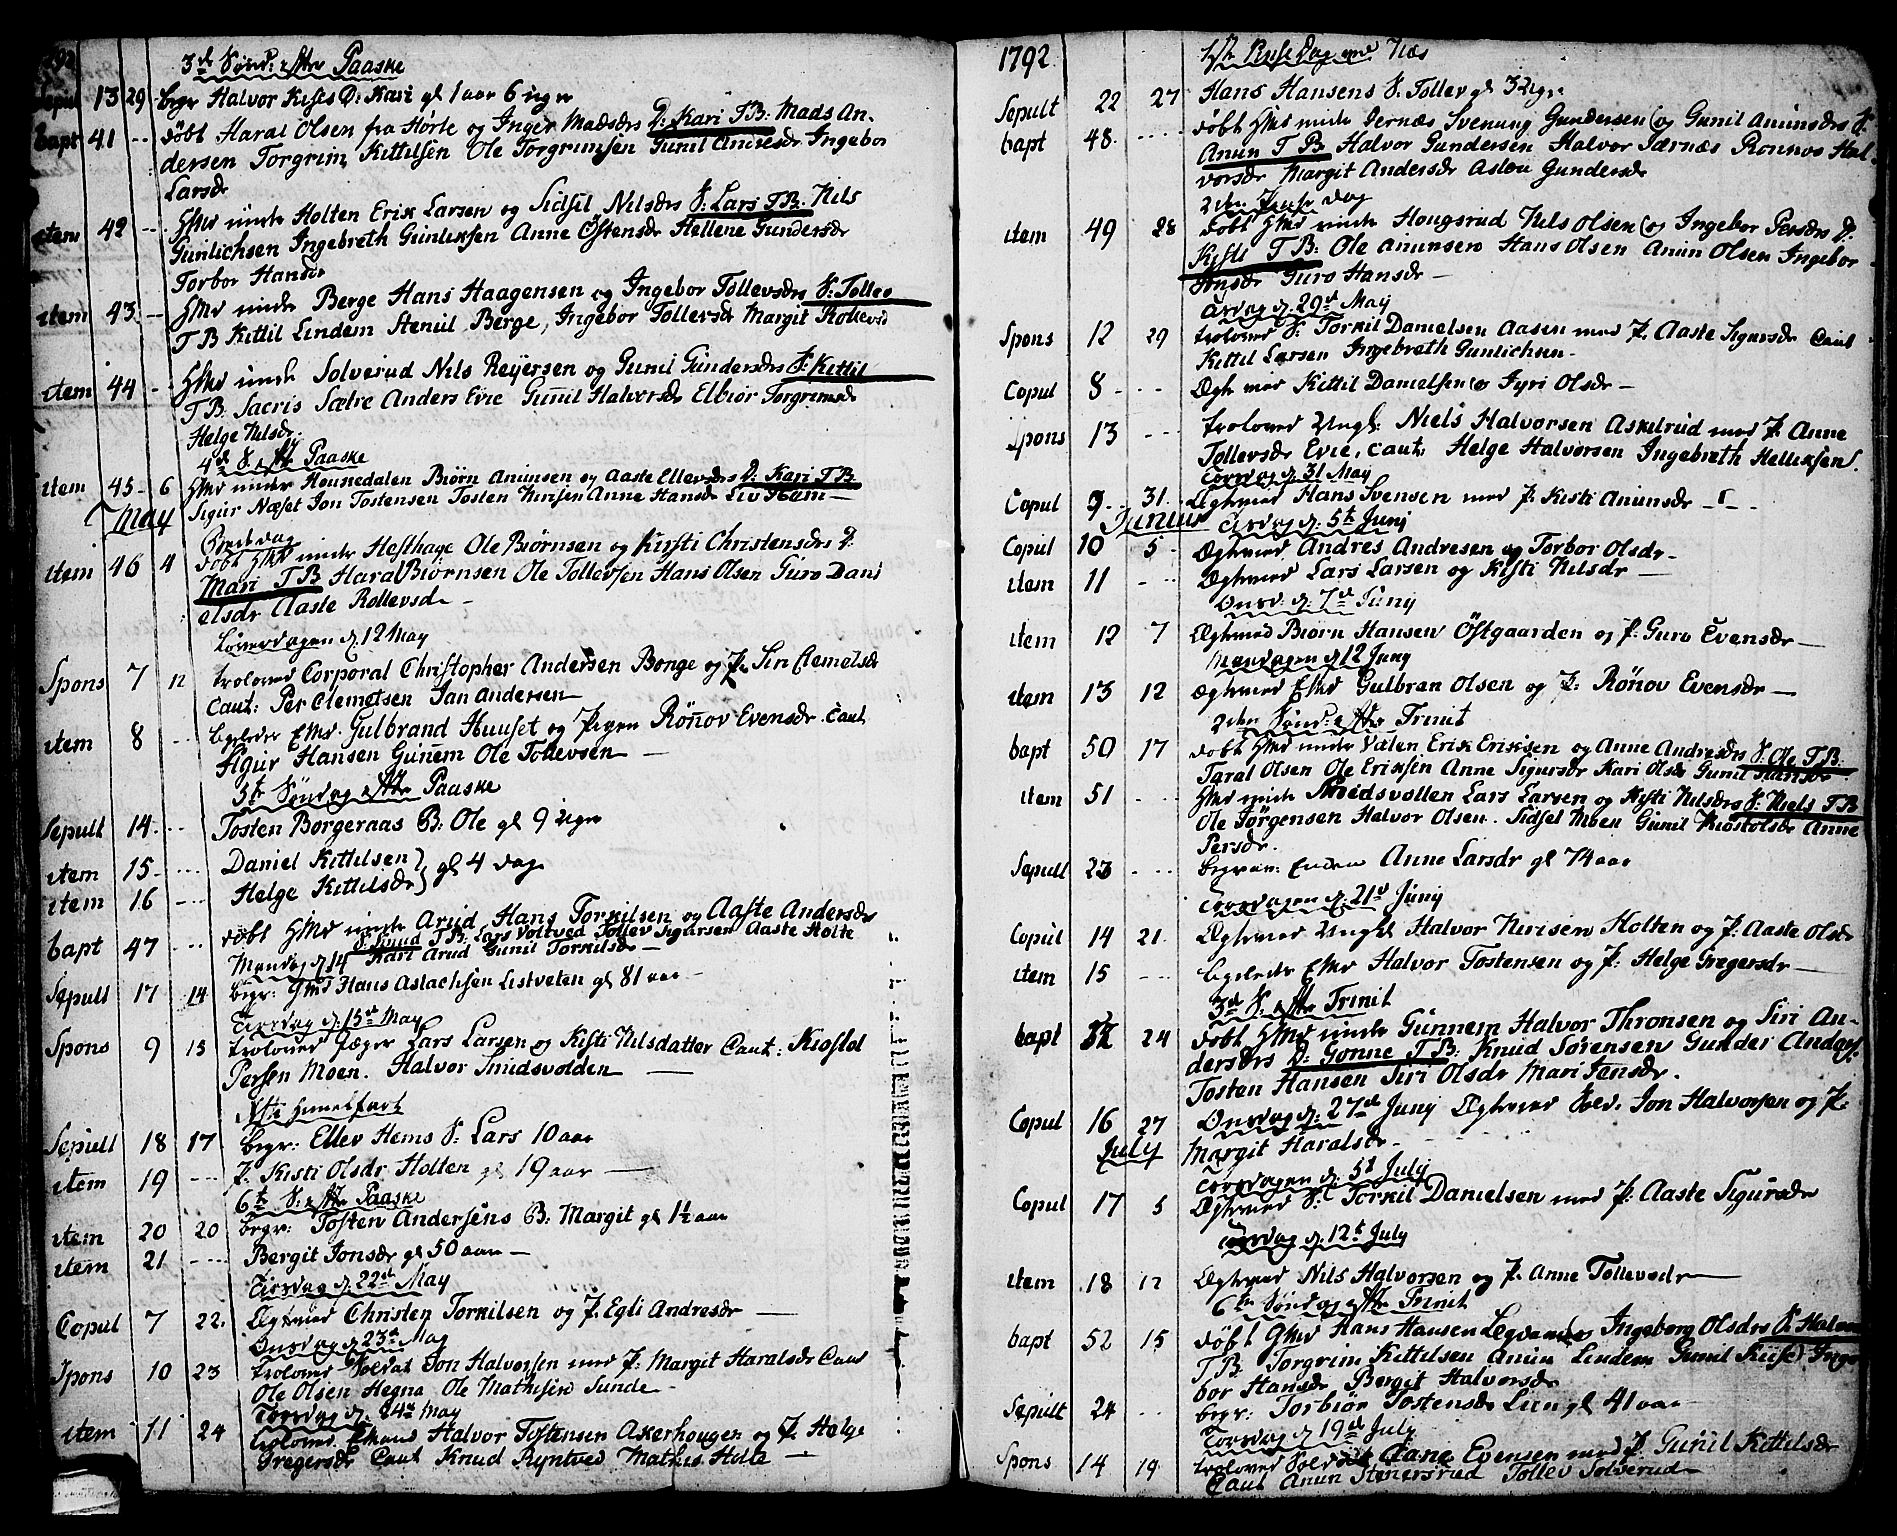 3d Sønd: efter Paaske
Sepult 13 29 begr Halvor Kises D: Kari gl 1 aar 6 uger
bapt 41 -- døbt Haral Olsen fra Hørte og Inger Madsdrs D: Kari T B: Mads An-
dersen Torgrim Kittilsen Ole Torgrimsen Gunil Andresdr Ingebor
Larsdr
item 42 -- Gmd inde Holten Erik Larsen og Sidsil Nilsdrs S: Lars T B: Nils
Gunlichsen Ingebreth Gunliksen Anne Østensdr Hellene Gundersdr
Torbor Hansdr
item 43 -- Gmd inde Berge Hans Haagensen og Ingebor Tollevsdrs S: Tollev
T B Kittil Lindem Stenül Berge, Ingebor Tollevsdr Margit Rollevsd
item 44 - Gmd inde Solverud Nils Reyersen og Gunil Gundersdrs S: Kittil
T B: Sacris Sætre Anders Evie Gunil Halvorsdr Elbior Torgrimsdr
Helge Nilsdr.
4de S. efter Paaske
item 45 - 6 Gmd inde Hounedalen Biørn Anunsen og Aaste Ellevsdrs D: Kari T B
Sigur Næset Jon Tostensen Tosten Nirisen Anne Hansdr Liv Ham
May
Bededag
item 46 4 døbt Gmd inde Hesthage Ole Biørnsen og Kirsti Christensdrs D.
Mari T B Haral Biørnsen Ole Tollevsen Hans Olsen Guro Dani
elsdr Aaste Rollevsd
Løverdagen d. 12 May
Spons 7 12 troloved Corporal Christopher Andersen Bonge og P. Siri Clemetsdr
Caut: Per Clemetsen Jan Andersen
item 8 --- ligeledes Ekmd Gulbrand Huuset og Pigen Rønov Evensdr. Caut
Sigur Hansen Gunem Ole Tollevsen
5te Søndag efter Paaske
Sepult 14 --- Tosten Borgeraas B: Ole gl 9 uger
item 15 --- Daniel Kittilsen } gl 4 dage
item 16 --- Helge Kittilsdr
bapt 47 --- døbt Gmd inde Arud Hans Torkilsen og Aaste Andersdr
S. Knud T B. Lars Voltved Tollev Sigursen Aaste Holte
Mandag d 14 Kari Arud Gunil Torkilsdr
Sepult 17 14 begr: Gmd Hans Aslachsen Listveten gl 81 aar
Tirsdag d. 15de May
Spons 9 15 troloved Jæger Lars Larsen og Kisti Nilsdatter Caut: Kiostol
Persen Moen. Halvor Smidsvolden
Xste Himmelfart
Sepult 18 17 begr: Ellev Hems S: Lars 10 aar
item 19 --- P. Kisti Olsdr Holten gl 19 aar
6te S: efter Paaske
item 20 20 begr: Tosten Andersens B: Margit gl 1½ aar
item 21 --- Bergit Jonsdr gl 50 aar
Tirsdag d. 22de May
Copul 7 22. Ægteviet Christen Torkilsen og P. Egli Andresdr
Onsdag d. 23de May
Spons 10 23 troloved Soldat Jon Halvorsen med P: Margit Haralsdr Caut
Ole Olsen Hegna Ole Mathisen Sunde
Torsdag d. 24de May
item 11 24 troloved Halvor Tostensen Akerhougen og P. Helge
Gregersdr Caut Knud Ryntved Mathis Holte

1792
1ste Pinsedag Næs
Sepult 22 27 Hans Hansens S. Tollev gl 3 Uger
bapt 48 ---- døbt Gmd inde Jernæs Svenung Gundersen og Gunil Anunsdrs S.
Anun T B Halvor Gundersen Halvor Jærnæs Ronnov Hal-
vorsdr Margit Andersdr Aslou Gundersdr
2den Pinse dag
item 49 28 døbt Gmd inde Hougsrud Nils Olsen og Ingebor Persdrs D.
Kisti T B: Ole Anunsen Hans Olsen Anun Olsen Ingebor
Guro Hansdr
Tirsdag d. 29de May
Spons 12 29 troloved S: Torkil Danielsen Aasen med P. Aaste Sigursdr Caut
Kittil Larsen Ingebreth Gunlichsen
Copul 8 --- Ægteviet Kittil Danielsen og Jyri Olsdr
Spons 13 --- troloved Ungk: Niels Halvorsen Askilrud med P. Anne
Tollevsdr Evie, Caut. Helge Halvorsen Ingebreth Helliksen
Torsdag d. 31 May
Copul 9 -- 31. Ægteviet Hans Svensen med P. Kisti Anunsdr
Junius Tirsdag d. 5te Junj
Copul 10 5 Ægteviet Andres Andresen og Torbor Olsdr
item 11 -- Ægteviet Lars Larsen og Kisti Nilsdr
Onsd: d. 7de Junj
item 12 7 Ægteviet Biørn Hansen Østgaarden og P. Guro Evensdr
Mandagen d 12 Junj
item 13 12 ægteviet Ekmd Gulbran Olsen og P: Rønov Evensdr
2den Sønd: efter Trinit
bapt 50 17 døbt Gmd inde Vælen Erik Eriksen og Anne Andresdrs S. Ole T B.
Taral Olsen Ole Eriksen Anne Sigursdr Kari Olsdr Gunil Hansdr
item 51 --- Gmd inde Smedsvollen Lars Larsen og Kisti Nilsdrs S: Niels T B
Ole Jørgensen Halvor Olsen. Sidsel Moen Gunil Kiostolsdr Anne
Persdr.
Sepult 23 --- begrav: Enken Anne Larsdr gl 74 aar
Torsdagen d. 21de Junj
Copul 14 21. Ægteviet Ungk Halvor Nirisen Holten og P: Aaste Olsdr
item 15 --- ligeledes Ekmd Halvor Tostensen og P: Helge Gregersdr
3de S. efter Trinit
bapt 24 døbt Gmd inde Gunnem Halvor Thronsen og Siri An-
dersdrs D: Gonne T B: Knud Sørensen Gunder Anders
Tosten Hansen Siri Olsdr Mari Jansdr.
Copul 16 27 Onsdag d: 27de Junj Ægteviet Sold. Jon Halvorsen og P.
July Margit Haralsdr
Torsdagen d. 5te July
Copul 17 5 Ægteviet S: Torkil Danielsen med P: Aaste Sigursdr
Torsdag d. 12te July
item 18 12 Ægteviet Nils Halvorsen og P. Anne Tollevsdr
6te Søndag efter Trinit
bapt 52 15 døbt Gmd Hans Hansen og Ingeborg Olsdrs S. Halvor
T B: Torgrim Kittilsen Anun Lindem Gunil Kiise Inge
bor Hansdr Bergit Halvorsdr
Sepult 24 --- begr: Torbiør Tostensdr Lun gl 41 aar
Torsdag d 19de July
Spons 14 19 troloved Soldat Evensen med P. Gunil Kittilsdr
Caut Anun Stenersrud Tollev Solverud